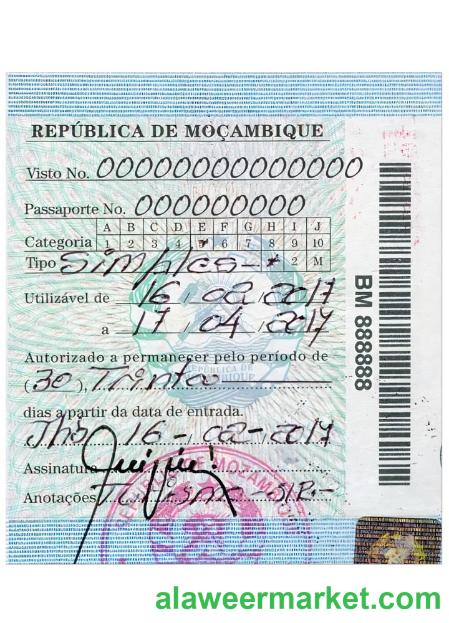 REPÚBLICA DE MOÇAMBIQUE
Visto No. 00000000000000
Passaporte No. 000000000
A B C D E F G H I J
Categoria 1 2 3 4 5 6 7 8 9 10
Tipo Simples 2 M
Utilizável de 16 / 02 / 2017
a 17 / 04 / 2017
Autorizado a permanecer pelo período de
(30), Trinta
dias a partir da data de entrada.
16 - / 02 - 2017
Assinatura
Anotações
BM 888888
alaweermarket.com